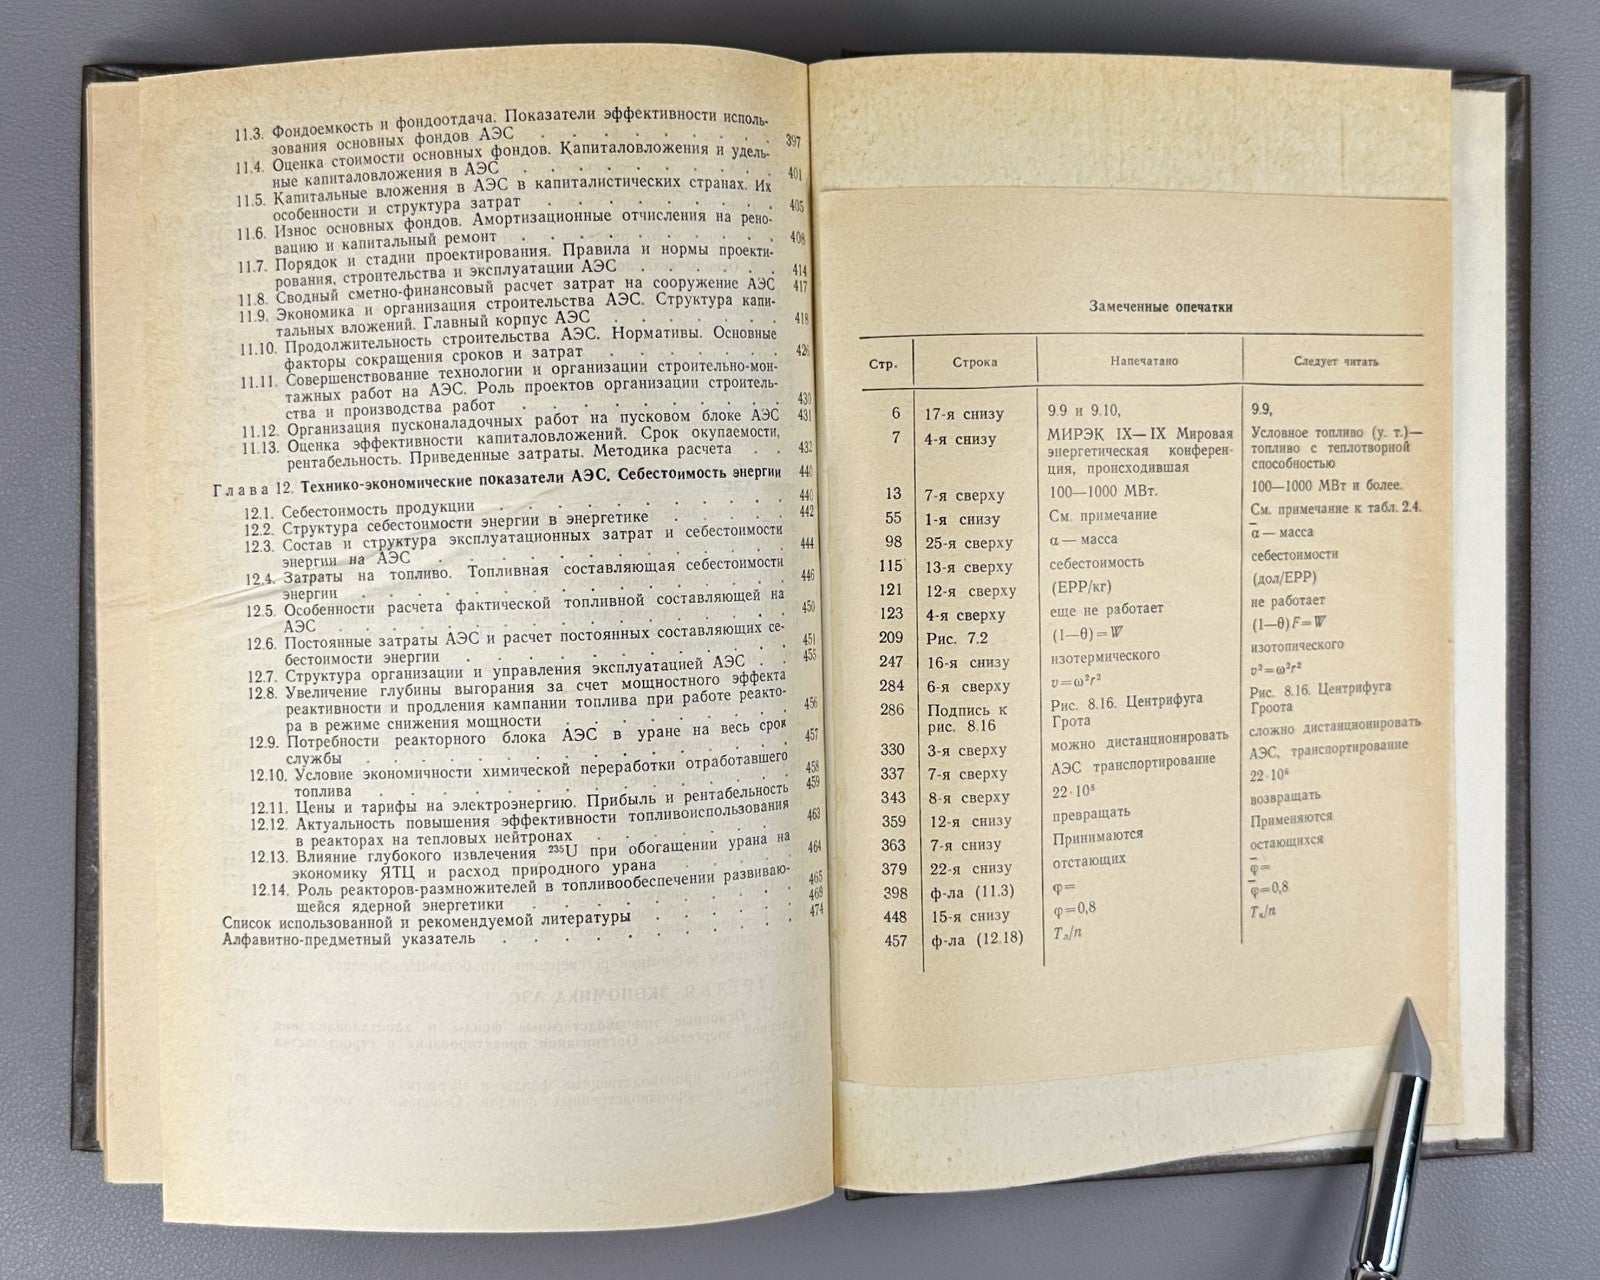 11.3. Фондоемкость и фондоотдача. Показатели эффективности исполь-
зования основных фондов АЭС . . . . . . . . 397
11.4. Оценка стоимости основных фондов. Капиталовложения и удель-
ные капиталовложения в АЭС . . . . . . . . 401
11.5. Капитальные вложения в АЭС в капиталистических странах. Их
особенности и структура затрат . . . . . . . . 405
11.6. Износ основных фондов. Амортизационные отчисления на рено-
вацию и капитальный ремонт . . . . . . . . 408
11.7. Порядок и стадии проектирования. Правила и нормы проекти-
рования, строительства и эксплуатации АЭС . . . . . . 414
11.8. Сводный сметно-финансовый расчет затрат на сооружение АЭС 417
11.9. Экономика и организация строительства АЭС. Структура капи-
тальных вложений. Главный корпус АЭС . . . . . . . 418
11.10. Продолжительность строительства АЭС. Нормативы. Основные
факторы сокращения сроков и затрат . . . . . . . 426
11.11. Совершенствование технологии и организации строительно-мон-
тажных работ на АЭС. Роль проектов организации строитель-
ства и производства работ . . . . . . . . . 430
11.12. Организация пусконаладочных работ на пусковом блоке АЭС 431
11.13. Оценка эффективности капиталовложений. Срок окупаемости,
рентабельность. Приведенные затраты. Методика расчета . . 432
Глава 12. Технико-экономические показатели АЭС. Себестоимость энергии 440
12.1. Себестоимость продукции . . . . . . . . . 440
12.2. Структура себестоимости энергии в энергетике . . . . . 442
12.3. Состав и структура эксплуатационных затрат и себестоимости
энергии на АЭС . . . . . . . . . . . 444
12.4. Затраты на топливо. Топливная составляющая себестоимости
энергии . . . . . . . . . . . . 446
12.5. Особенности расчета фактической топливной составляющей на
АЭС . . . . . . . . . . . . . 450
12.6. Постоянные затраты АЭС и расчет постоянных составляющих се-
бестоимости энергии . . . . . . . . . . 451
12.7. Структура организации и управления эксплуатацией АЭС . . 455
12.8. Увеличение глубины выгорания за счет мощностного эффекта
реактивности и продления кампании топлива при работе реакто-
ра в режиме снижения мощности . . . . . . . . 456
12.9. Потребности реакторного блока АЭС в уране на весь срок
службы . . . . . . . . . . . . 457
12.10. Условие экономичности химической переработки отработавшего
топлива . . . . . . . . . . . . 458
12.11. Цены и тарифы на электроэнергию. Прибыль и рентабельность 459
12.12. Актуальность повышения эффективности топливоиспользования
в реакторах на тепловых нейтронах . . . . . . . 463
12.13. Влияние глубокого извлечения ²³⁵U при обогащении урана на
экономику ЯТЦ и расход природного урана . . . . . 464
12.14. Роль реакторов-размножителей в топливообеспечении развиваю-
щейся ядерной энергетики . . . . . . . . . 465
Список использованной и рекомендуемой литературы . . . . . 469
Алфавитно-предметный указатель . . . . . . . . . 474
Замеченные опечатки
Стр. Строка Напечатано Следует читать
6 17-я снизу 9.9 и 9.10, 9.9,
7 4-я снизу МИРЭК IX—IX Мировая Условное топливо (у. т.)—
энергетическая конферен- топливо с теплотворной
ция, происходившая способностью
13 7-я сверху 100—1000 МВт. 100—1000 МВт и более.
55 1-я снизу См. примечание См. примечание к табл. 2.4.
98 25-я сверху α — масса α̅ — масса
115 13-я сверху себестоимость себестоимости
121 12-я сверху (ЕРР/кг) (дол/ЕРР)
123 4-я сверху еще не работает не работает
209 Рис. 7.2 (1—θ)=W (1—θ)F=W
247 16-я снизу изотермического изотопического
284 6-я сверху v=ω²r² v²=ω²r²
286 Подпись к Рис. 8.16. Центрифуга Рис. 8.16. Центрифуга
рис. 8.16 Грота Гроота
330 3-я сверху можно дистанционировать сложно дистанционировать
337 7-я сверху АЭС транспортирование АЭС, транспортирование
343 8-я сверху 22·10⁸ 22·10⁶
359 12-я снизу превращать возвращать
363 7-я снизу Принимаются Применяются
379 22-я снизу отстающих остающихся
398 ф-ла (11.3) φ= φ̅=
448 15-я снизу φ=0,8 φ̅=0,8
457 ф-ла (12.18) Tл/n Tк/n